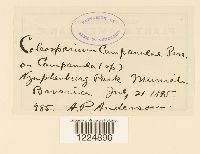 Coleosporium Campanulae Pers.
on Campanula (sp)
Nymphenburg Park, Munich
Bavaria July 21 1895
985. A.P. Anderson.
1224890